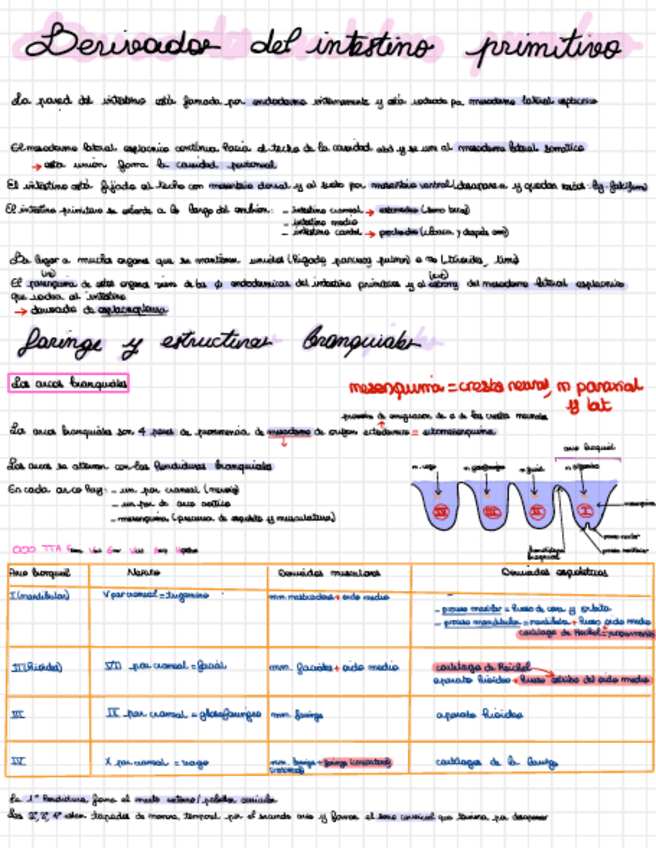 Derivados del intestino primitivo
La pared del intestino está formada por endodermo internamente y está rodeada por mesodermo lateral esplacnico
El mesodermo lateral esplacnico continua hacia el techo de la cavidad abd y se une al mesodermo lateral somático
→ esta union forma la cavidad peritoneal
El intestino está fijado al techo con mesenterio dorsal y al suelo por mesenterio ventral (desaparece y quedan restos:
El intestino primitivo se extiende a lo largo del embrión: - intestino craneal → estomodeo
- intestino medio
- intestino caudal → proctodeo (cloaca y después ano)
Da lugar a muchos organos que se mantienen unidos (higado, pancreas y pulmon) o no (tiroides, timo)
El parenquima de estos organos viene de las endodermicas del intestino primitivo y el del mesodermo lateral esplacnico
que rodea al intestino
→ derivado de esplacnopleura
faringe y estructuras branquiales
Los arcos branquiales
mesenquima = cresta neural, m paraxial
y lat
Los arcos branquiales son 4 pares de prominencia de mesodermo de origen ectodermico = ectomesenquima
Los arcos se alternan con las hendiduras branquiales
arco branquial
En cada arco hay: - un par craneal (nervio)
- un par de arco aortico
- mesenquima (precursor de esqueleto y musculatura)
IV III II I
OOO TTA F
Arco branquial Nervio Derivados musculares Derivados esqueléticos
I (mandibular) V par craneal = trigemino mm. masticadores + oido medio
- proceso maxilar = hueso de cara y orbita
- proceso mandibular = mandibula + hueso oido medio
II (hioides) VII par craneal = facial mm. faciales + oido medio cartilago de Reichel
aparato hioideo + hueso estribo del oido medio
III IX par craneal = glosofaringeo mm. faringe aparato hioideo
IV X par craneal = vago cartilagos de la laringe
La 1ª hendidura forma el meato externo / pabellon auricular
Las 2ª, 3ª, 4ª estan tapadas de manera temporal por el segundo arco y forman el seno cervical que termina por desaparecer